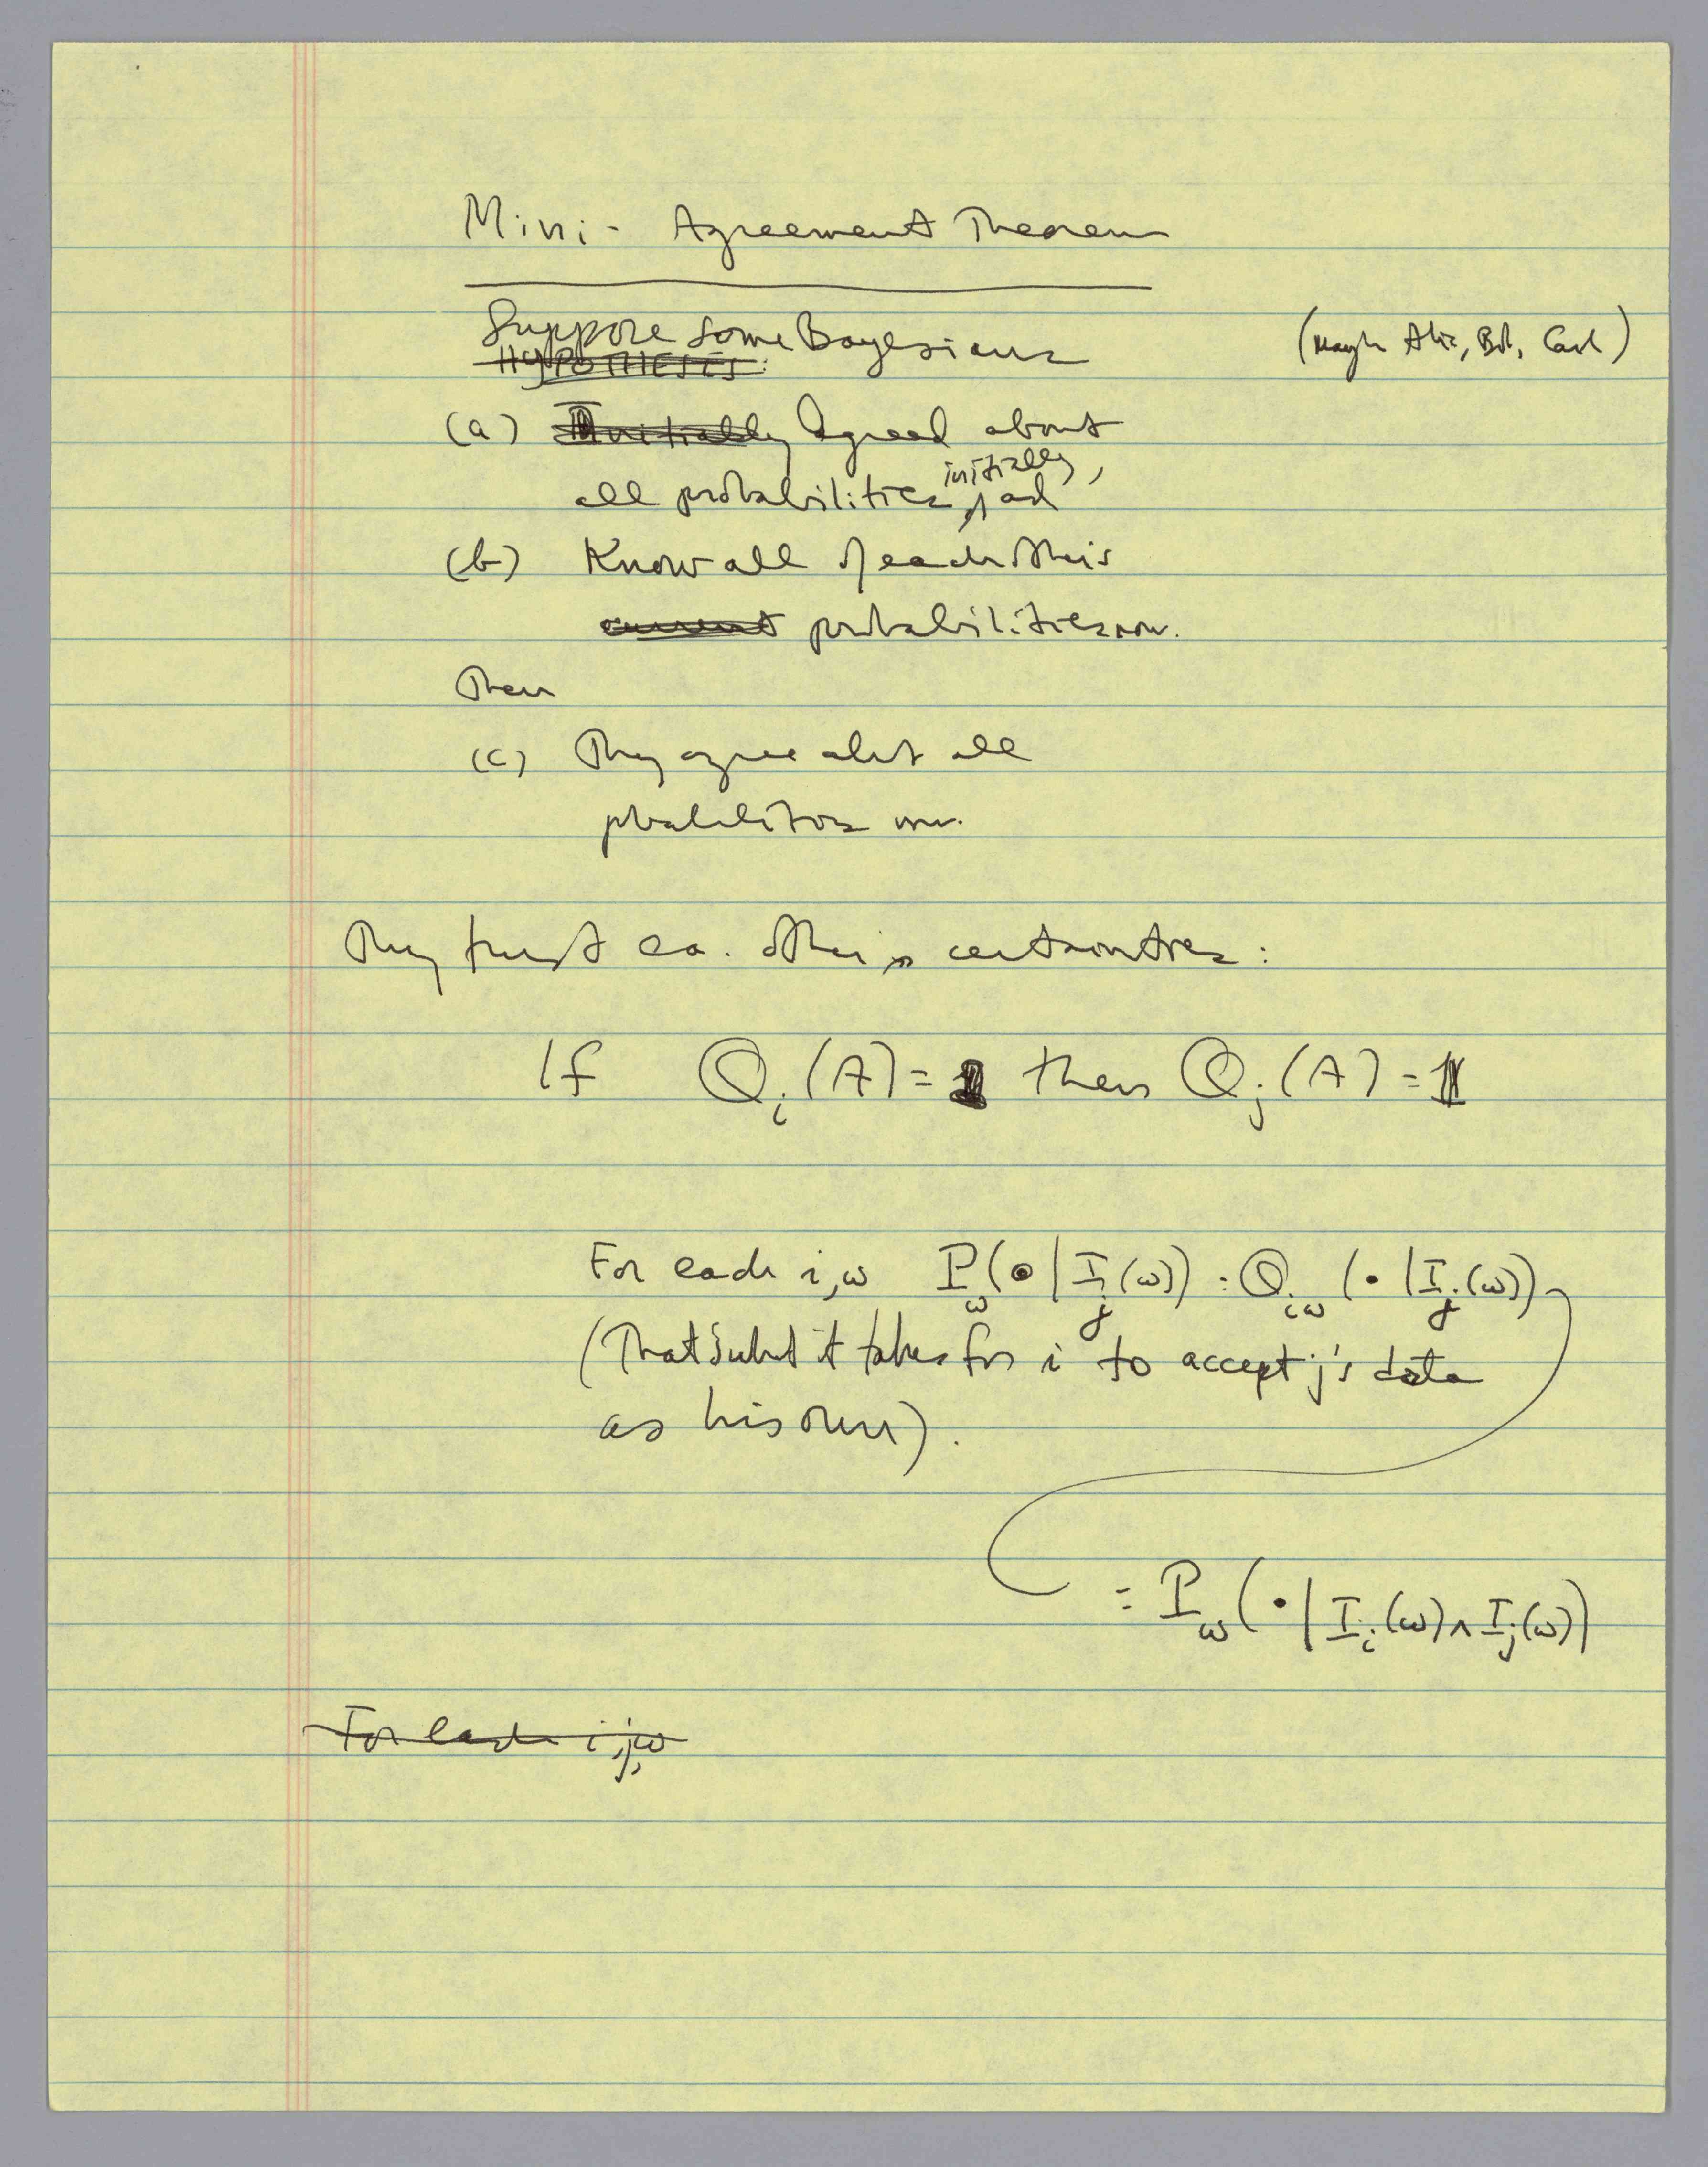 Mini - Agreement Theorem
Suppose some Bayesians (Maybe Alice, Bob, Carl)
HYPOTHESES:
(a) Initially Agreed about
initially,
all probabilities, and
(b) Know all of each other's
current probabilities now.
Then
(c) They agree about all
probabilities now.
They trust ea. other's certainties:
If Q_i (A) = 1 then Q_j (A) = 1
For each i,ω P_ω(•|I_j(ω)) = Q_iω (•|I_j(ω))
(That's what it takes for i to accept j's data
as his own).
= P_ω(•|I_i(ω)∧I_j(ω))
For each i,j,ω